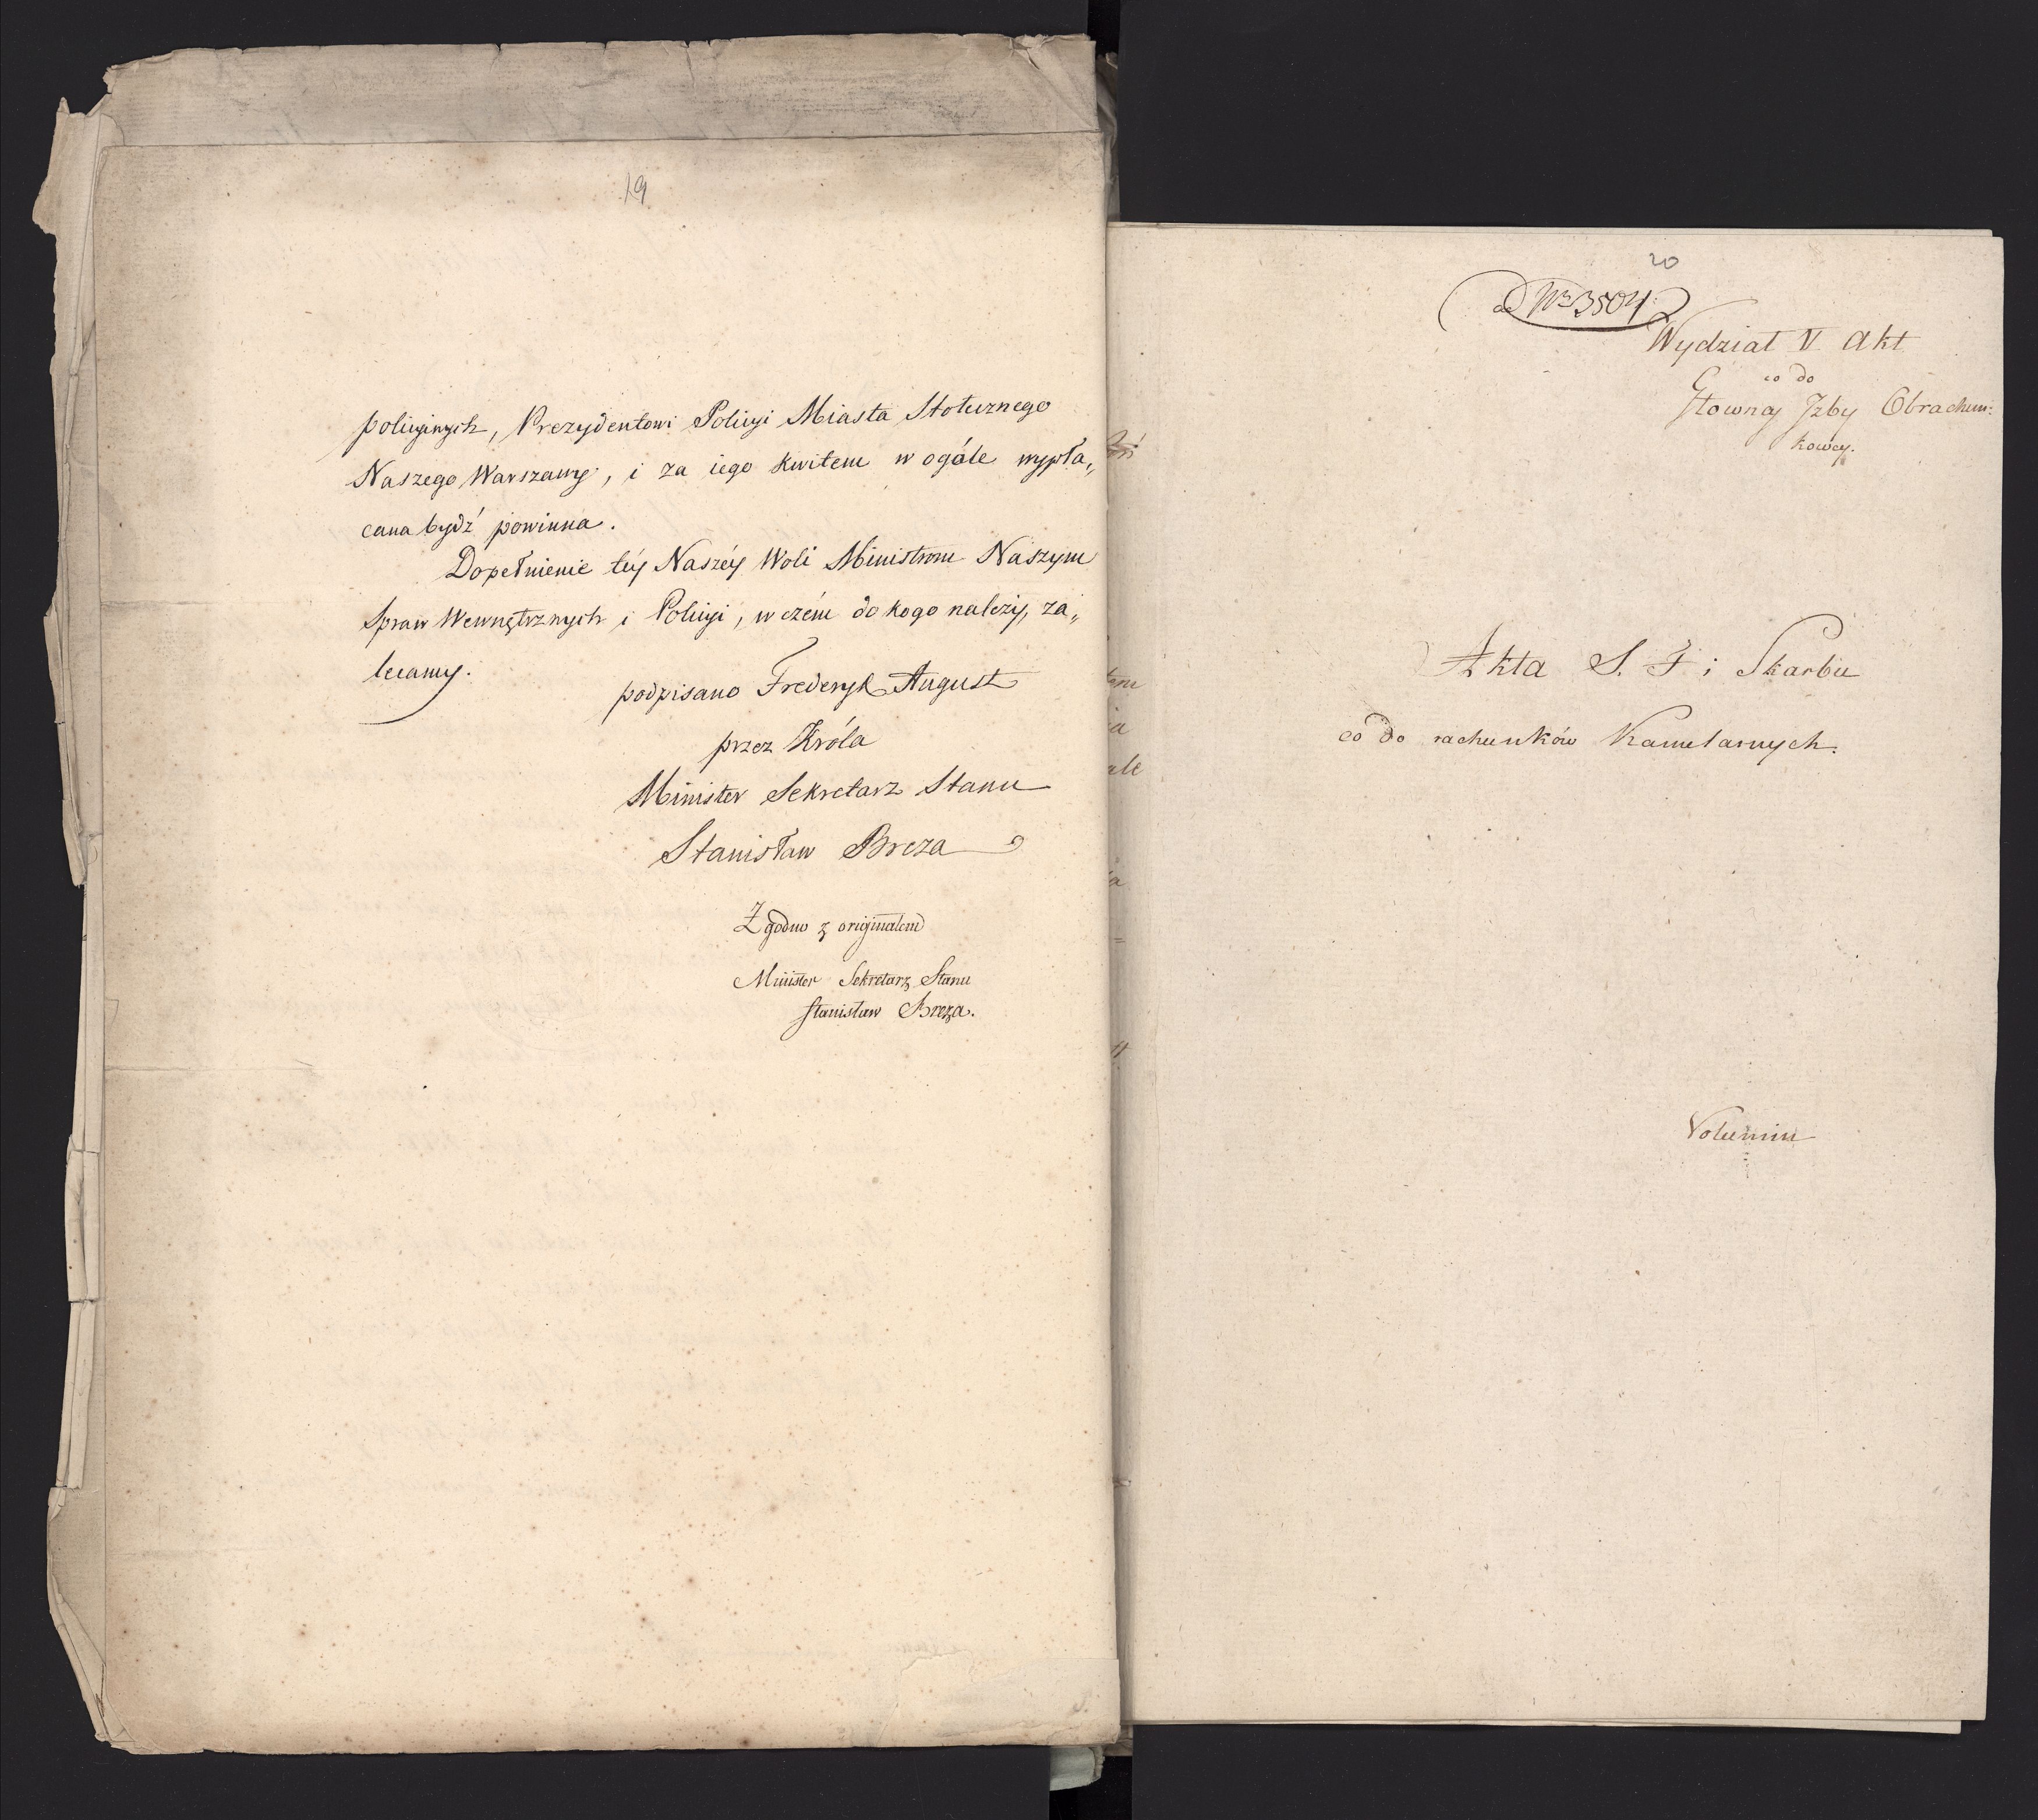 19
policyinych, Prezydentowi Policyi Miasta Stołecznego
Naszego Warszawy, i za iego kwitem w ogóle wypła„
cana bydź powinna.
Dopełnienie téy Naszéy Woli Ministrom Naszym
Spraw Wewnętrznych i Policyi, w czém do kogo należy, za„
lecamy.
podpisano Frederyk August
przez Króla
Minister Sekretarz Stanu
Stanisław Breza
Zgodno z originałem
Minister Sekretarz Stanu
Stanisław Breza.
20
ad Nro 3504
Wydział V Akt
co do
Głowney Izby Obrachun:
kowey.
Akta S. F i Skarbu
co do rachunków Kamelarnych.
Volumin